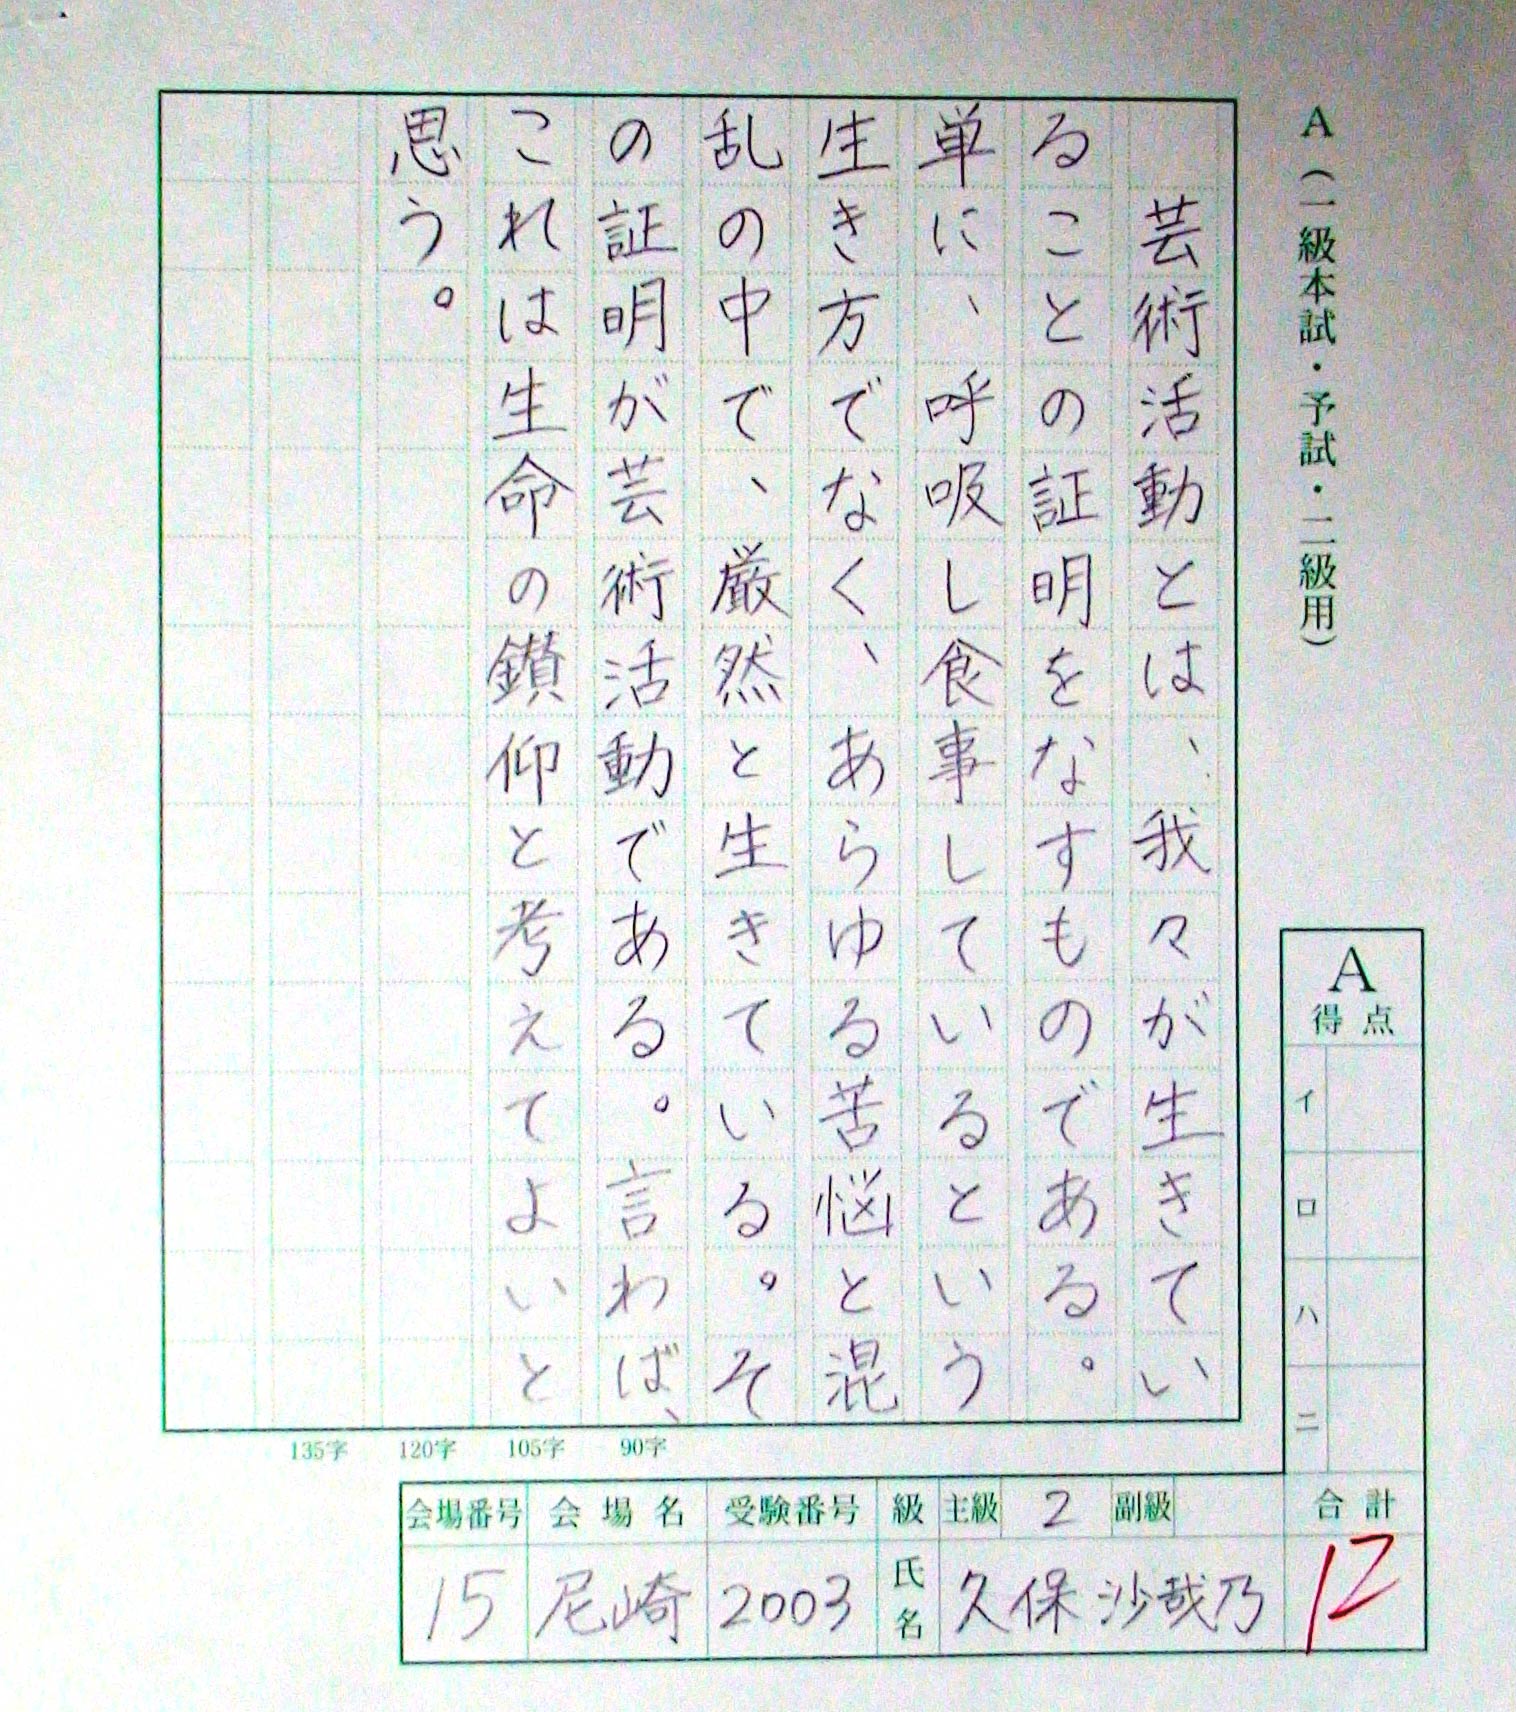 A(一級本試・予試・二級用)
芸術活動とは、我々が生きてい
ることの証明をなすものである。
単に、呼吸し食事しているという
生き方でなく、あらゆる苦悩と混
乱の中で、厳然と生きている。そ
の証明が芸術活動である。言わば、
これは生命の鑚仰と考えてよいと
思う。
135字 120字 105字 90字
A
得点
イ
ロ
ハ
ニ
合計
12
会場番号 会場名 受験番号 級 主級 2 副級
15 尼崎 2003 氏名 久保 沙哉乃